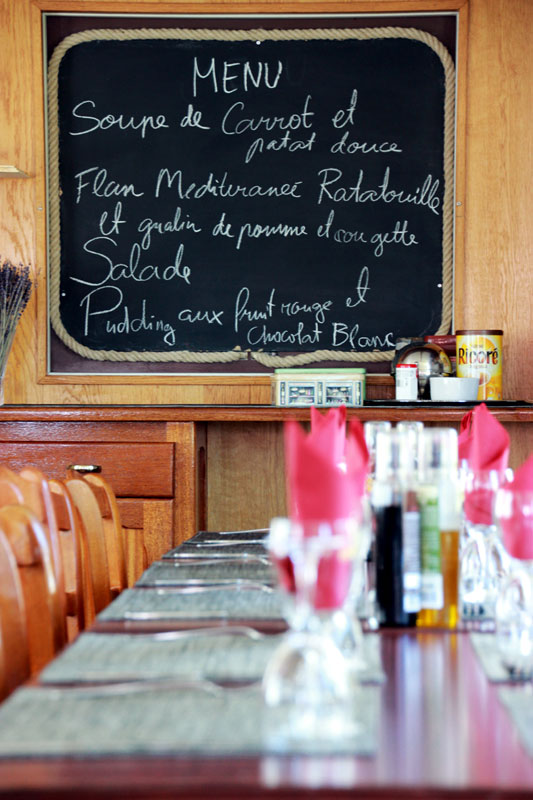 MENU
Soupe de Carrot et
patat douce
Flan Mediteraneé Ratatouille
et gratin de pomme et courgette
Salade
Pudding aux fruit rouge et
Chocolat Blanc
Ricoré